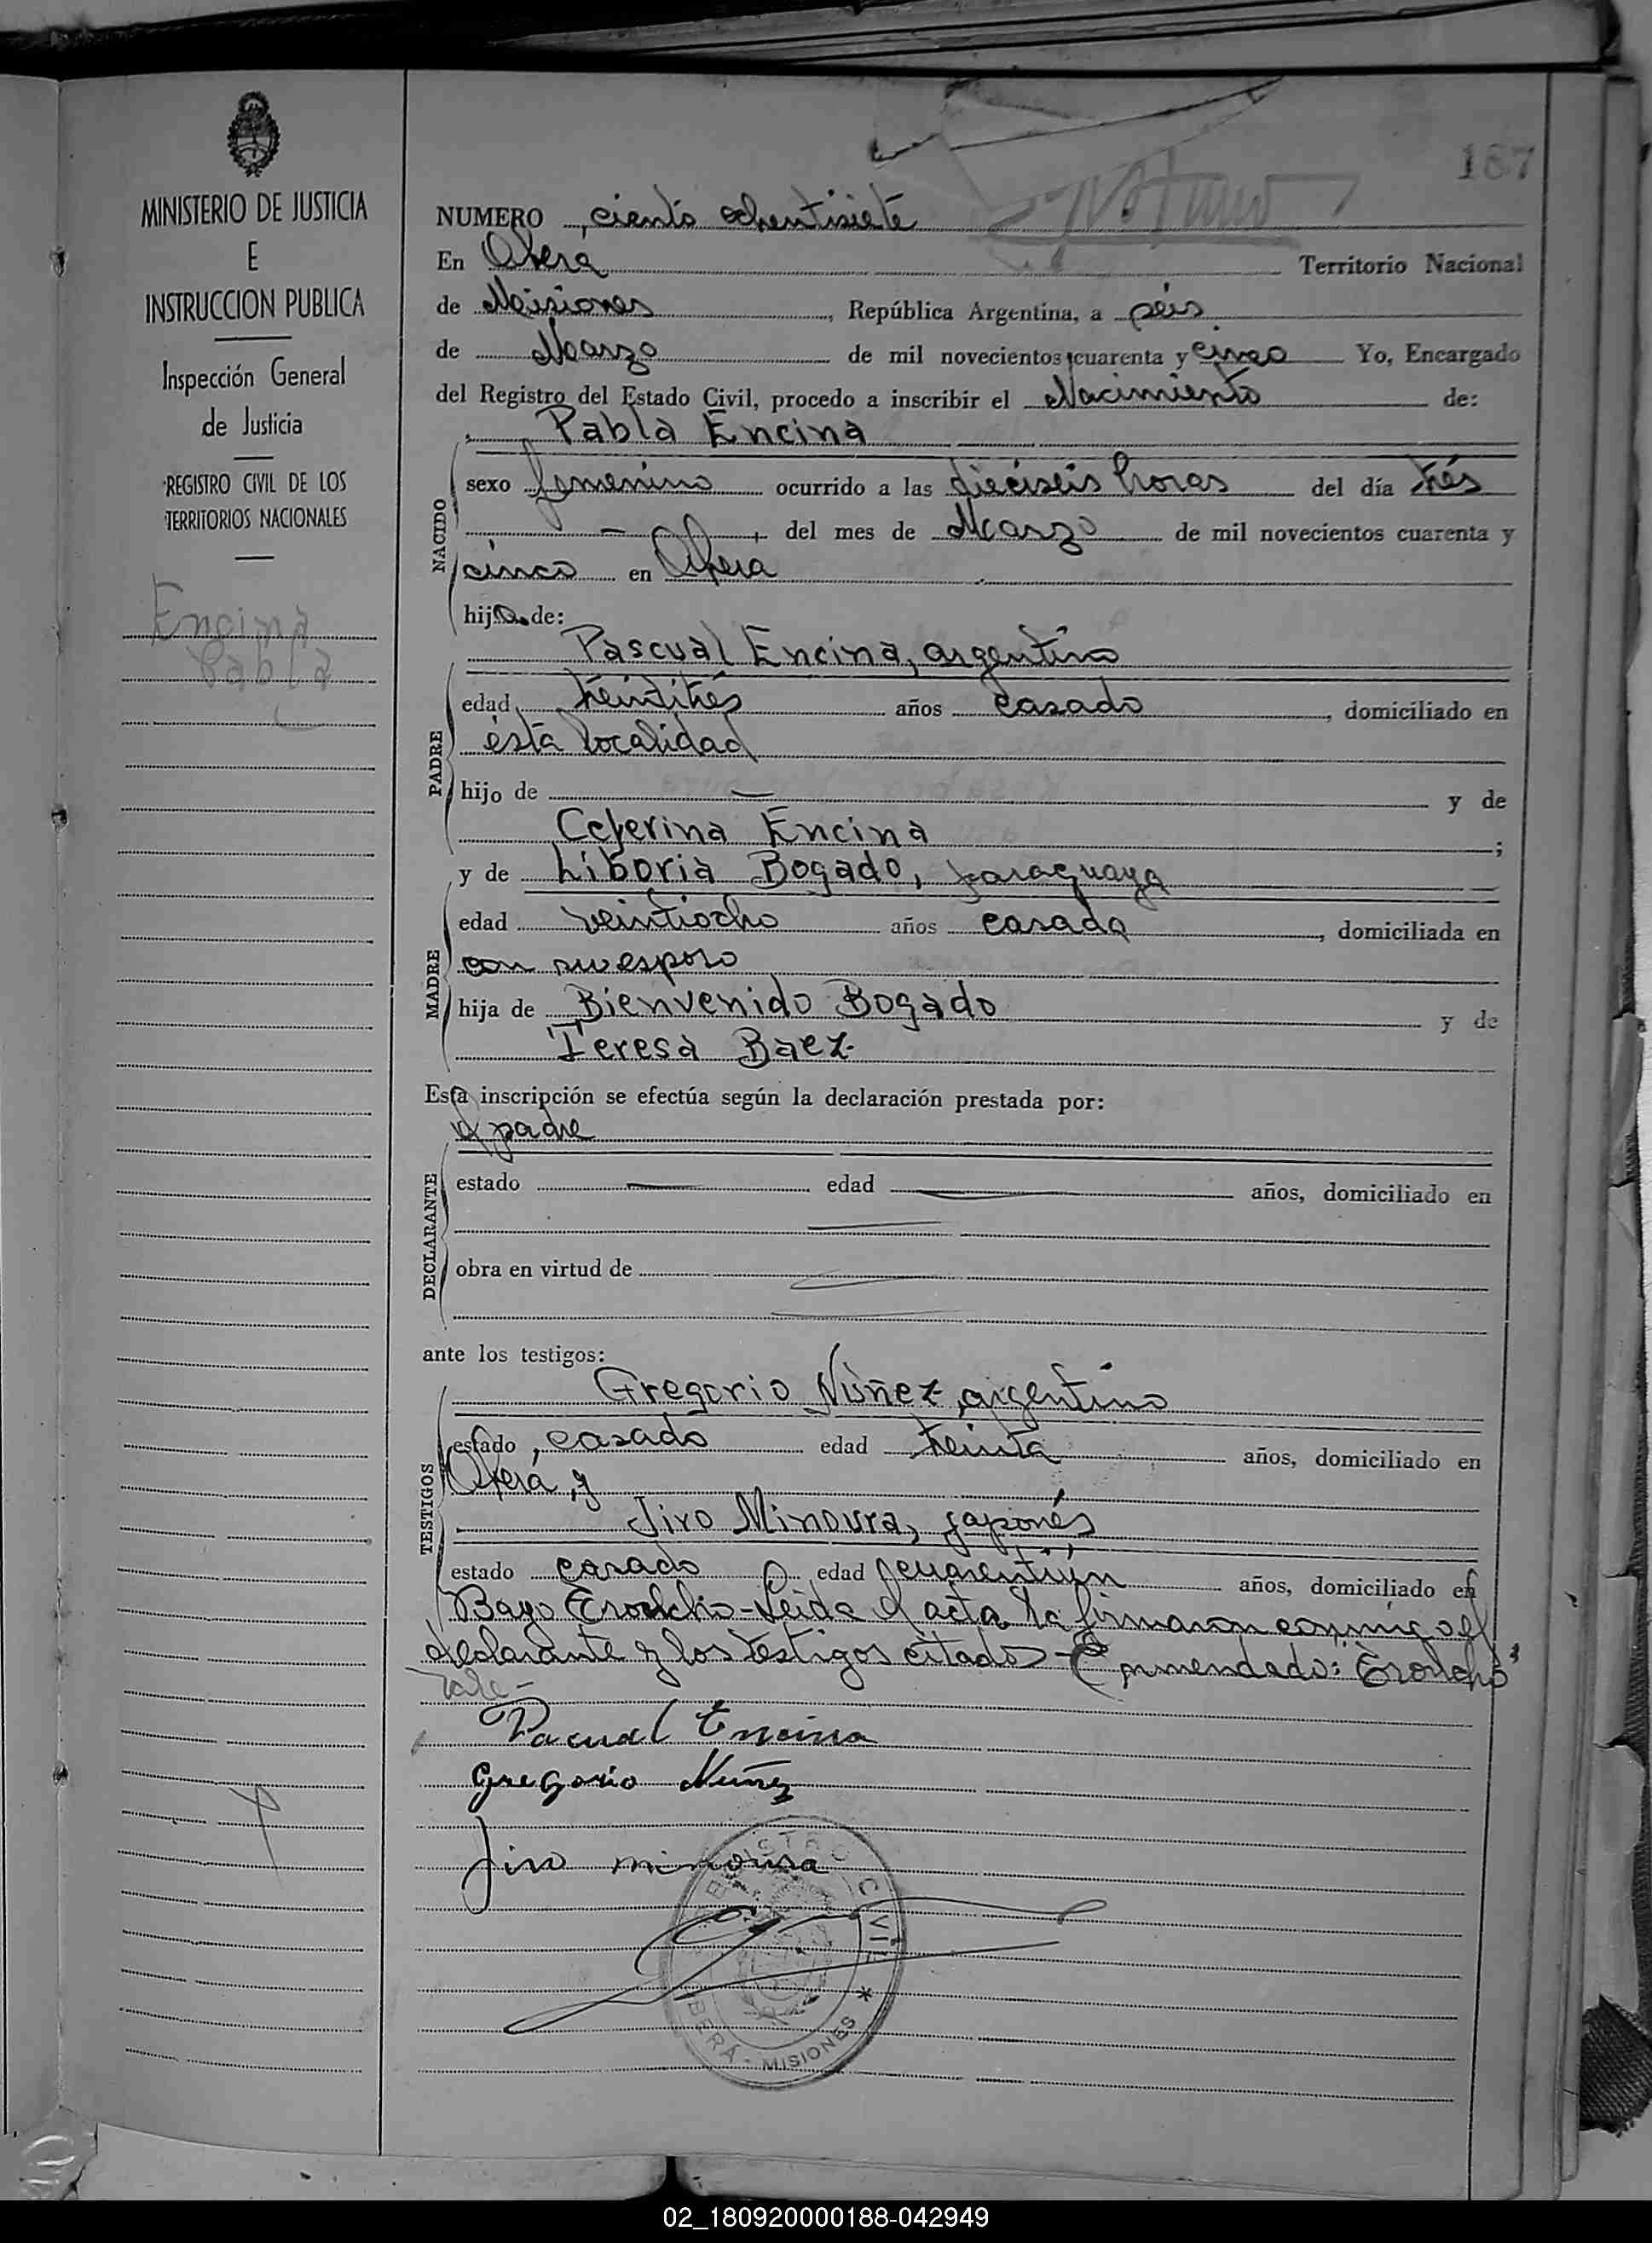 187
MINISTERIO DE JUSTICIA
E
INSTRUCCION PUBLICA
Inspección General
de Justicia
REGISTRO CIVIL DE LOS
TERRITORIOS NACIONALES
Encina
Pabla
NUMERO ciento ochentisiete
En Oberá Territorio Nacional
de Misiones, República Argentina, a séis
de Marzo de mil novecientos cuarenta y cinco Yo, Encargado
del Registro del Estado Civil, procedo a inscribir el Nacimiento de:
Pabla Encina
NACIDO
sexo femenino ocurrido a las dieciseis horas del día trés
del mes de Marzo de mil novecientos cuarenta y
cinco en Obera
hija de:
Pascual Encina, argentino
PADRE
edad treintitrés años casado, domiciliado en
ésta localidad
hijo de — y de
Ceferina Encina;
y de Liboria Bogado, paraguaya
MADRE
edad veintiocho años casada, domiciliada en
con su esposo
hija de Bienvenido Bogado y de
Teresa Baez-
Esta inscripción se efectúa según la declaración prestada por:
el padre
DECLARANTE
estado — edad — años, domiciliado en
obra en virtud de
ante los testigos:
Gregorio Núñez, argentino
TESTIGOS
estado, casado edad treinta años, domiciliado en
Oberá, y
Jiro Minoura, japonés
estado casado edad cuarentiún años, domiciliado en
Bayo - Leida el acta la firmaron conmigo el
declarante y los testigos citados - Enmendado:
Vale-
Pacual Encina
Gregorio Nuñez
Jiro minoura
REGISTRO CIVIL
OBERÁ - MISIONES *
02_180920000188-042949